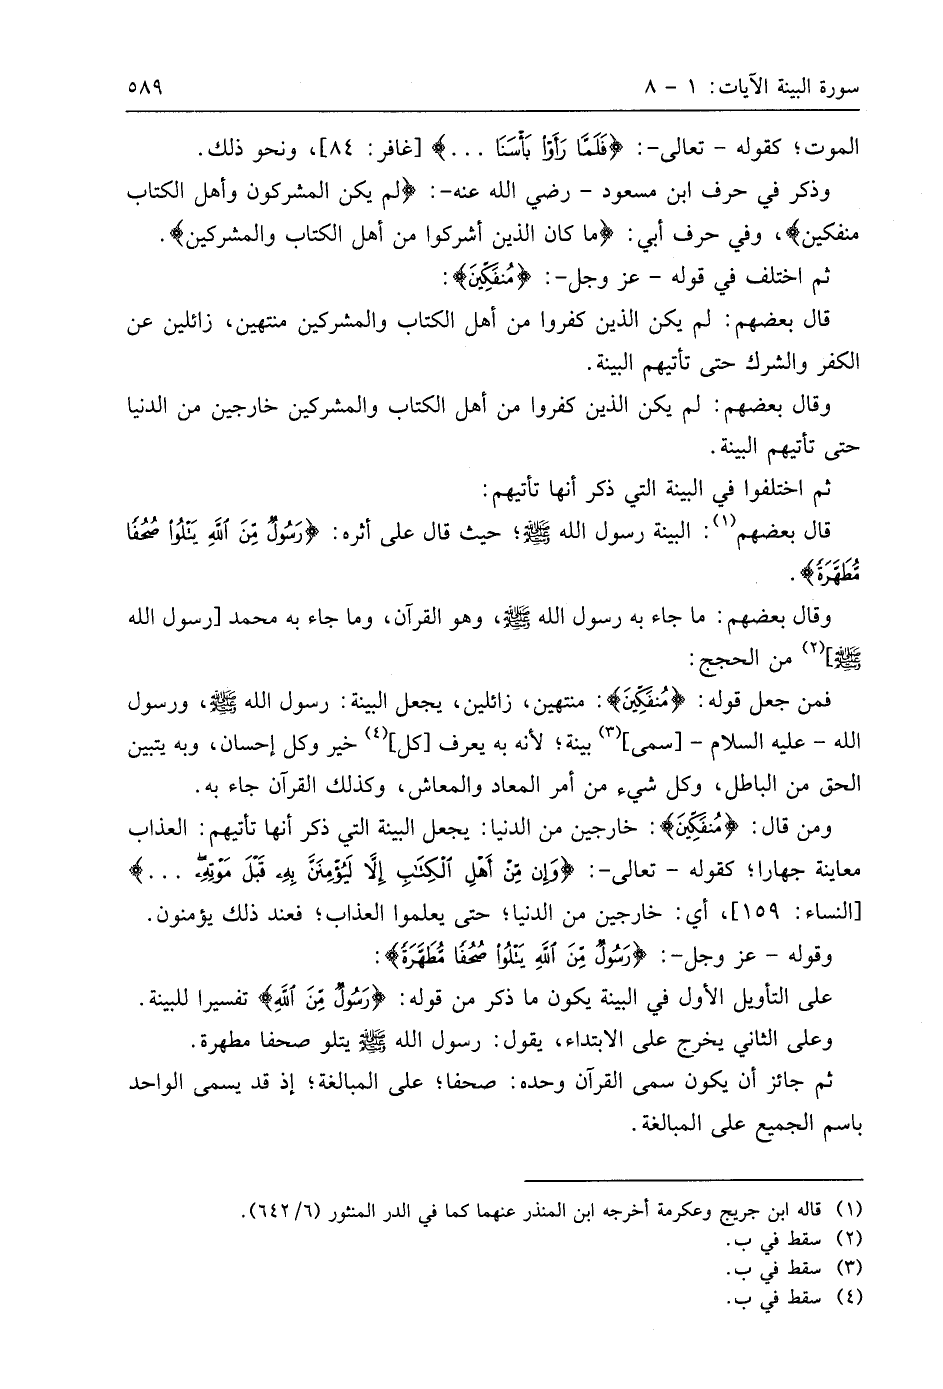 سورة البينة الآيات: ١ - ٨ ٥٨٩
الموت؛ كقوله - تعالى-: ﴿فَلَمَّا رَأَوْا بَأْسَنَا ...﴾ [غافر: ٨٤]، ونحو ذلك.
وذكر في حرف ابن مسعود - رضي الله عنه-: ﴿لم يكن المشركون وأهل الكتاب
منفكين﴾، وفي حرف أبي: ﴿ما كان الذين أشركوا من أهل الكتاب والمشركين﴾.
ثم اختلف في قوله - عز وجل-: ﴿مُنفَكِّينَ﴾:
قال بعضهم: لم يكن الذين كفروا من أهل الكتاب والمشركين منتهين، زائلين عن
الكفر والشرك حتى تأتيهم البينة.
وقال بعضهم: لم يكن الذين كفروا من أهل الكتاب والمشركين خارجين من الدنيا
حتى تأتيهم البينة.
ثم اختلفوا في البينة التي ذكر أنها تأتيهم:
قال بعضهم(١): البينة رسول الله ﷺ؛ حيث قال على أثره: ﴿رَسُولٌ مِّنَ ٱللَّهِ يَتْلُوا۟ صُحُفًا
مُّطَهَّرَةً﴾.
وقال بعضهم: ما جاء به رسول الله ﷺ، وهو القرآن، وما جاء به محمد [رسول الله
ﷺ](٢) من الحجج:
فمن جعل قوله: ﴿مُنفَكِّينَ﴾: منتهين، زائلين، يجعل البينة: رسول الله ﷺ، ورسول
الله - عليه السلام - [سمى](٣) بينة؛ لأنه به يعرف [كل](٤) خير وكل إحسان، وبه يتبين
الحق من الباطل، وكل شيء من أمر المعاد والمعاش، وكذلك القرآن جاء به.
ومن قال: ﴿مُنفَكِّينَ﴾: خارجين من الدنيا: يجعل البينة التي ذكر أنها تأتيهم: العذاب
معاينة جهارا؛ كقوله - تعالى-: ﴿وَإِن مِّنْ أَهْلِ ٱلْكِتَٰبِ إِلَّا لَيُؤْمِنَنَّ بِهِۦ قَبْلَ مَوْتِهِۦۖ ...﴾
[النساء: ١٥٩]، أي: خارجين من الدنيا؛ حتى يعلموا العذاب؛ فعند ذلك يؤمنون.
وقوله - عز وجل-: ﴿رَسُولٌ مِّنَ ٱللَّهِ يَتْلُوا۟ صُحُفًا مُّطَهَّرَةً﴾:
على التأويل الأول في البينة يكون ما ذكر من قوله: ﴿رَسُولٌ مِّنَ ٱللَّهِ﴾ تفسيرا للبينة.
وعلى الثاني يخرج على الابتداء، يقول: رسول الله ﷺ يتلو صحفا مطهرة.
ثم جائز أن يكون سمى القرآن وحده: صحفا؛ على المبالغة؛ إذ قد يسمى الواحد
باسم الجميع على المبالغة.
(١) قاله ابن جريج وعكرمة أخرجه ابن المنذر عنهما كما في الدر المنثور (٦٤٢/٦).
(٢) سقط في ب.
(٣) سقط في ب.
(٤) سقط في ب.